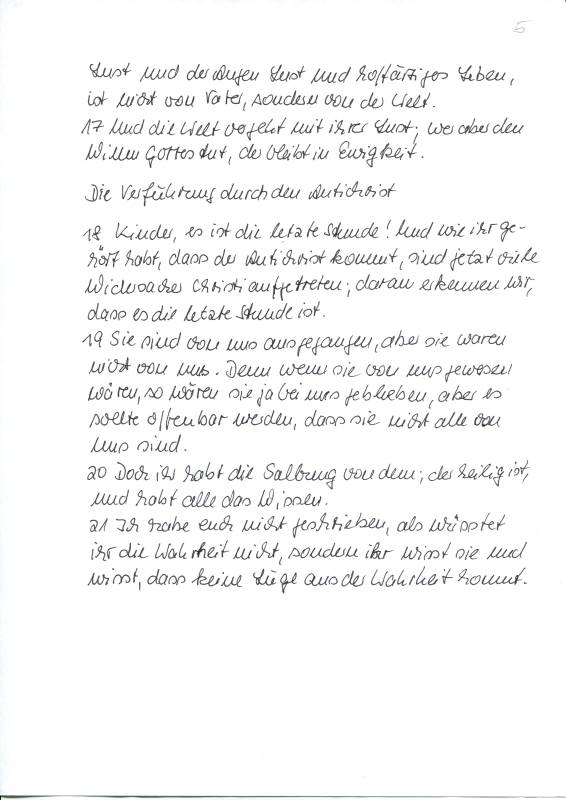 5
Lust und der Augen Lust und hoffärtiges Leben,
ist nicht vom Vater, sondern von der Welt.
17 Und die Welt vergeht mit ihrer Lust; wer aber den
Willen Gottes tut, der bleibt in Ewigkeit.
Die Verführung durch den Antichrist
18 Kinder, es ist die letzte Stunde! Und wie ihr ge-
hört habt, dass der Antichrist kommt, sind jetzt viele
Widersacher Christi aufgetreten; daran erkennen wir,
dass es die letzte Stunde ist.
19 Sie sind von uns ausgegangen, aber sie waren
nicht von uns. Denn wenn sie von uns gewesen
wären, so wären sie ja bei uns geblieben, aber es
sollte offenbar werden, dass sie nicht alle von
uns sind.
20 Doch ihr habt die Salbung von dem, der heilig ist,
und habt alle das Wissen.
21 Ich habe euch nicht geschrieben, als wüsstet
ihr die Wahrheit nicht, sondern ihr wisst sie und
wisst, dass keine Lüge aus der Wahrheit kommt.